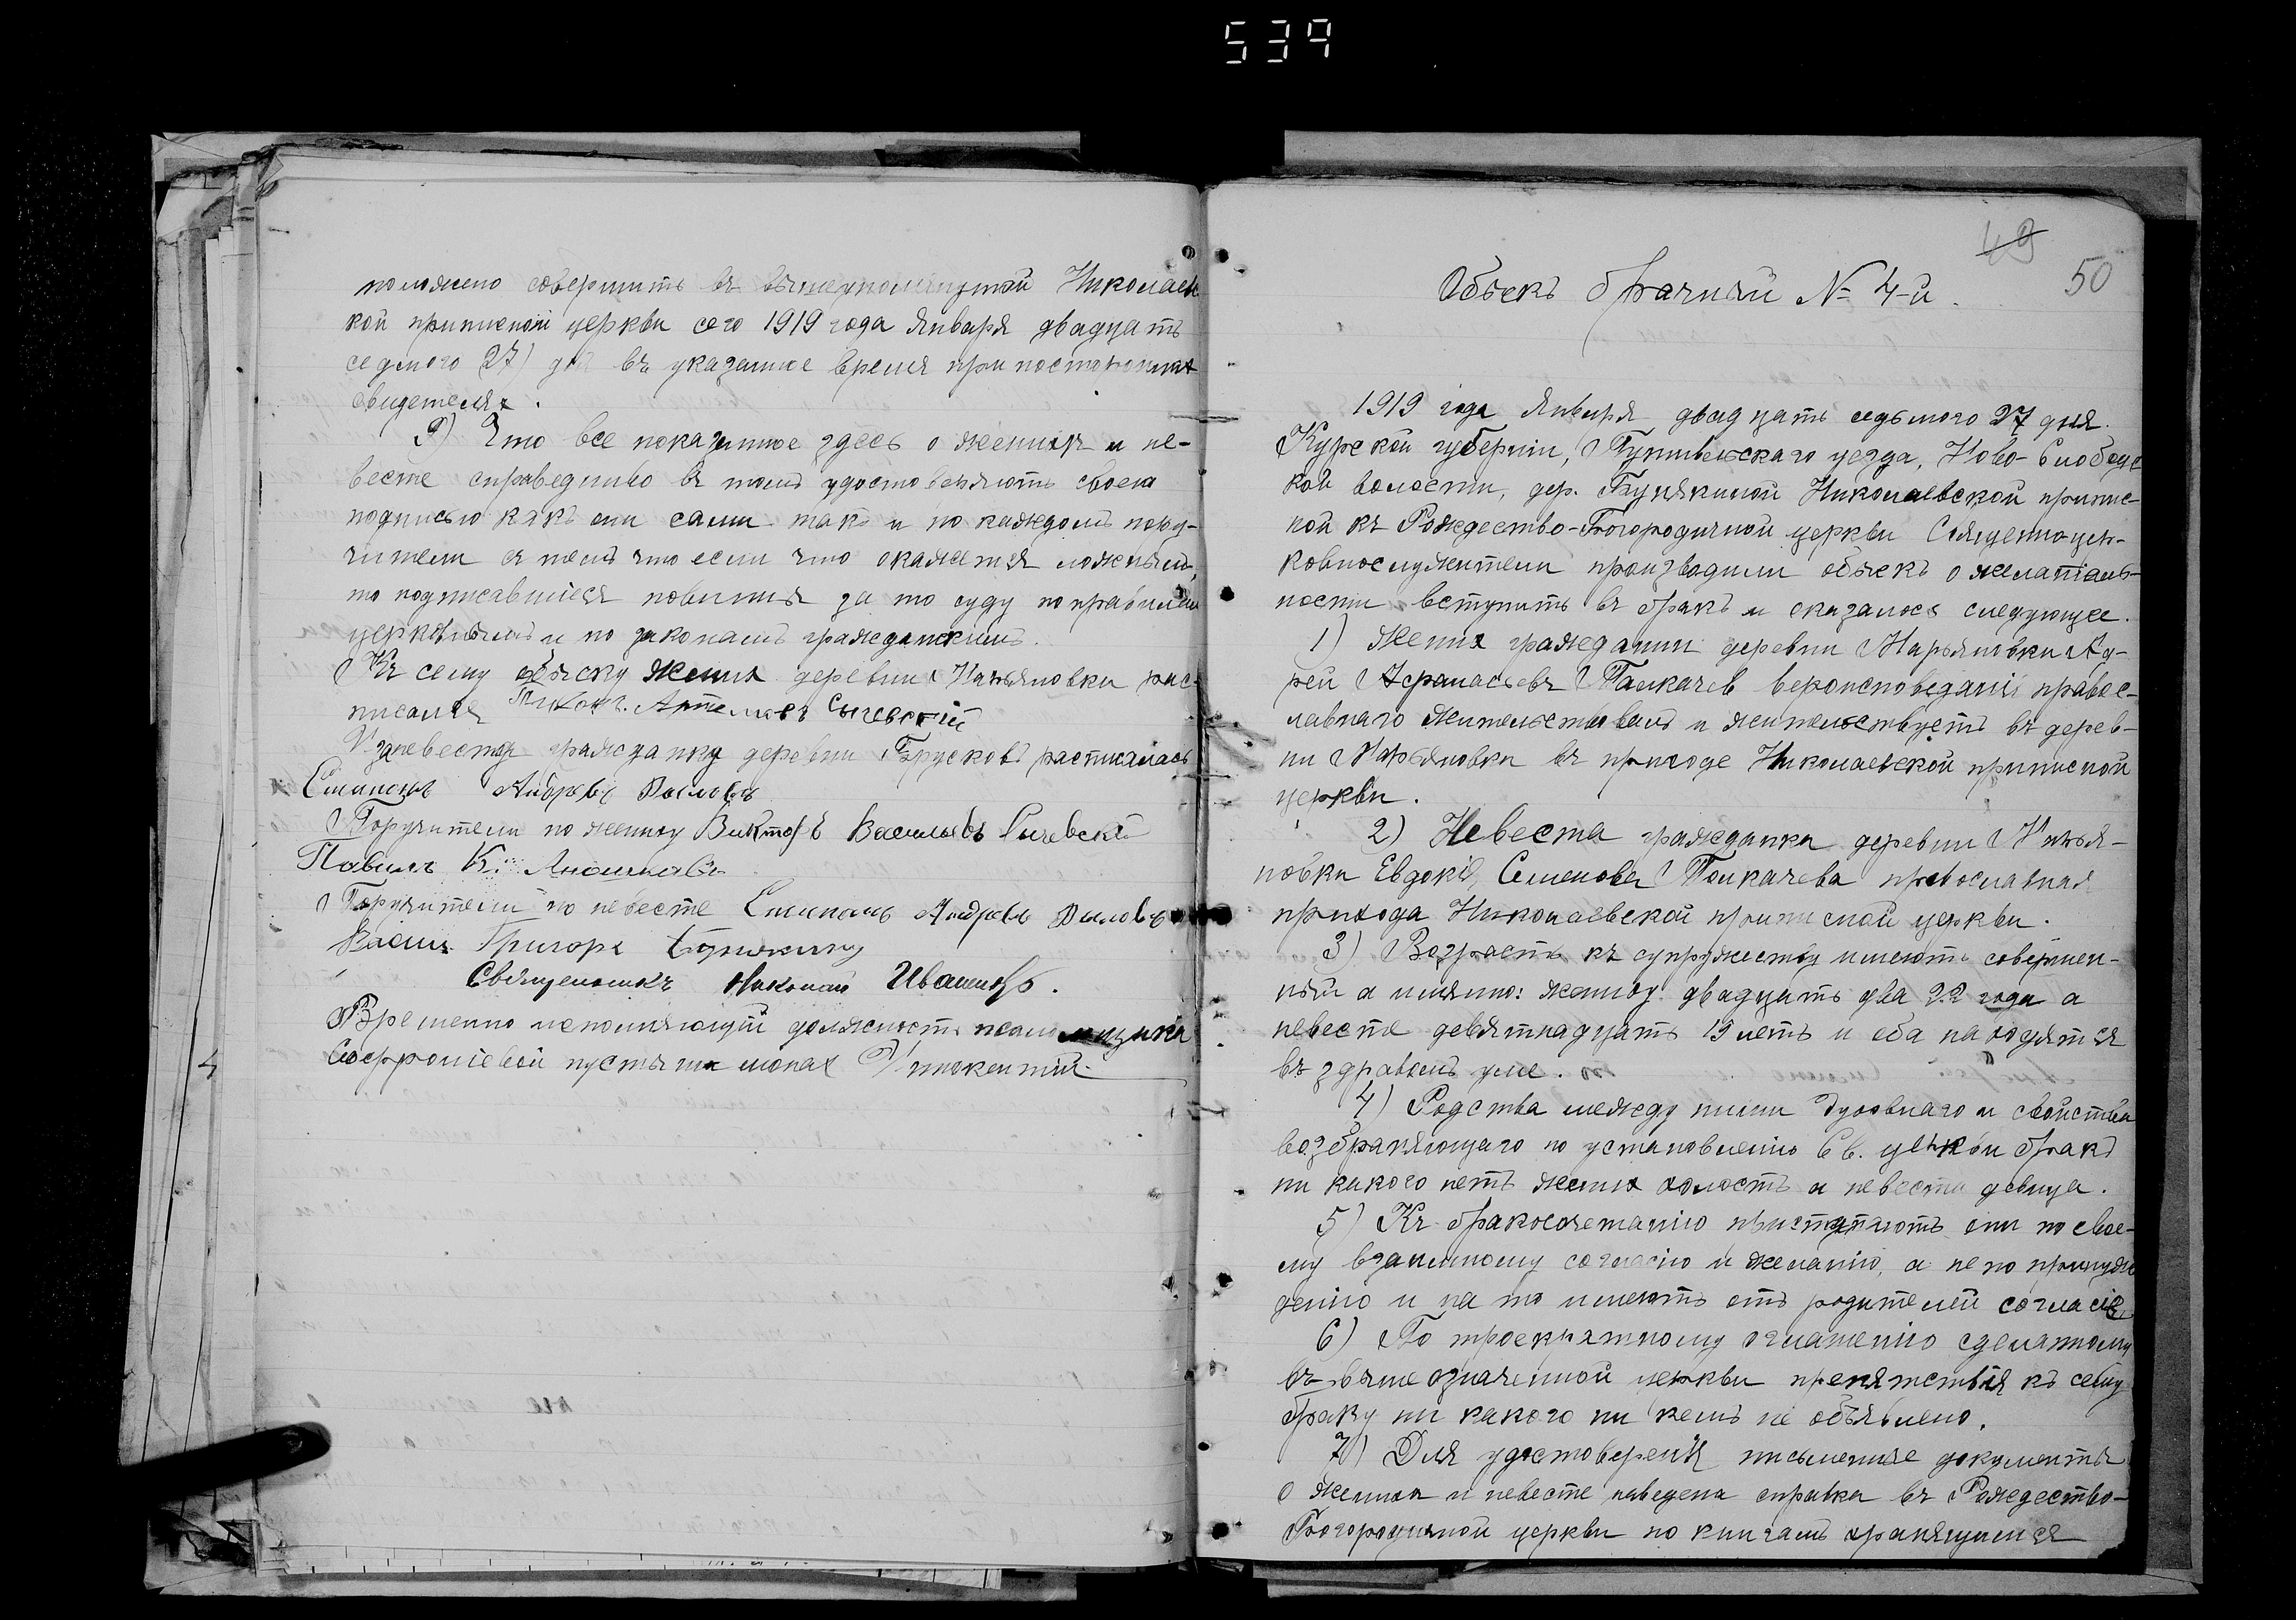 539
положено совершить въ вышеупомянутой Николаевс
кой приписной церкви сего 1919 года Января двадцать
седмого 27) дня въ указанное время при посторонних
свидетелях.
9) Что все показанное здесь о женихе и не-
весте справедливо в томъ удостоверяютъ своею
подписью какъ они сами такъ и по каждомъ пору-
чители съ темъ что если что окажется ложнымъ,
то подписавшиеся повинны за то суду по правилам
церковнымъ и по законамъ гражданскимъ.
Къ сему обыску жених деревни Марьяновки рос-
писался Тихонъ Артемовъ Сычевский
За невесту гражданку деревни Брусковъ расписалась
Симионъ Андревъ
Поручители по жениху Викторъ Васильевъ Сычевский
Павилъ К.
Поручители по невесте Симионъ Андревъ
Васил. Григоре Бунякину
Священникъ Николай Ивановъ.
Временно исполняющий должность псаломщика
Софрониевой пустыни монах Инокентий
4
49
50
Обыскъ брачный № 4-й.
1919 года Января двадцать седьмого 27 дня.
Курской губернии, Путивльскаго уезда, Ново-Слободс
кой волости, дер. Бунякиной Николаевской припис-
ной къ Рождество-Богородичной церкви Священно-цер-
ковнослужители производили обыскъ о желатель-
ности вступить въ бракъ и оказалось следующее.
1) Жених гражданин деревни Марьяновки Ад-
рей Афанасьевъ Толкачев вероисповедания правос-
лавнаго жительствовалъ и жительствуетъ въ дерев-
ни Марьяновки въ приходе Николаевской приписной
церкви.
2) Невеста гражданка деревни Марья-
новки Евдокія Семенова Толкачева православная
прихода Николаевской приписной церкви.
3) Возрастъ къ супружеству имеютъ совершен-
ный а имянно: жениху двадцать два 22 года а
невесте девятнадцать 19 летъ и оба находятся
въ здравомъ уме.
4) Родства между ними духовнаго и свойства
возбраняющаго по установлению Св. церкви бракъ
ни какого нетъ жених холостъ а невеста девица.
5) Къ бракосочетанию приступаютъ они по свое-
му взаимному согласию и желанию, а не по принуж
дению и на то имеютъ отъ родителей согласие.
6) По троекратному оглашению сделанному
въ выше означенной церкви препятствия къ сему
браку ни какого ни кемъ не объявлено.
7) Для удостоверения письменные документы
о женихе и невесте наведена справка въ Рождество-
Богородичной церкви по книгамъ хранящимся